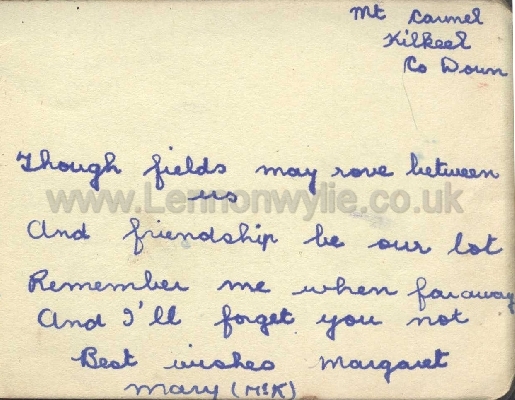 Mt Carmel
Kilkeel
Co Down
Though fields may rove between
us
www.Lennonwylie.co.uk
And friendship be our lot
Remember me when far away
And I'll forget you not
Best wishes Margaret
Mary (McK)